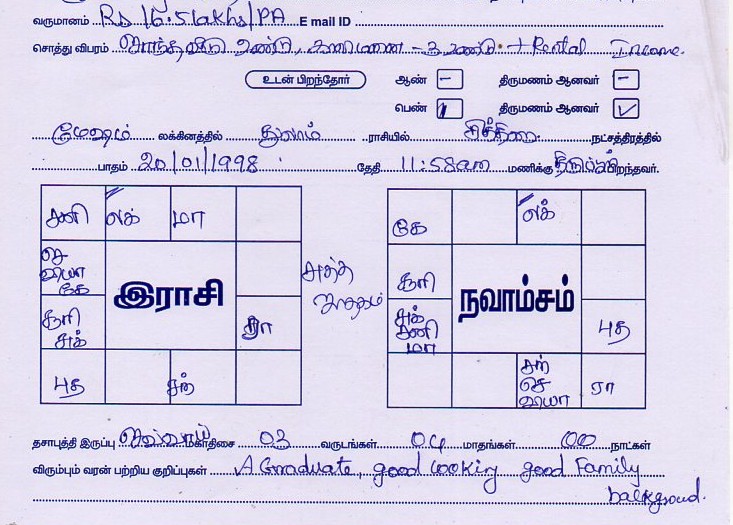 வருமானம் Rs 16.5 lakhs/PA E mail ID
சொத்து விபரம் சொந்தவீடு உண்டு, காலிமனை - 3 உண்டு + Rental Income.
உடன் பிறந்தோர் ஆண் - திருமணம் ஆனவர் -
பெண் 1 திருமணம் ஆனவர் ✓
மேஷம் லக்கினத்தில் துலாம் ராசியில் சித்திரை நட்சத்திரத்தில்
பாதம் 20/01/1998 தேதி 11:58am மணிக்கு பிறந்தவர்.
சனி லக் மா
செ
கே
சூரி
சுக்
ரா
புத சந்
இராசி
சுத்த
ஜாதகம்
கே லக்
சூரி
சுக்
சனி
மா
புத
சந்
செ
ரா
நவாம்சம்
தசாபுத்தி இருப்பு செவ்வாய் மகாதிசை 03 வருடங்கள் 04 மாதங்கள் 00 நாட்கள்
விரும்பும் வரன் பற்றிய குறிப்புகள் A Graduate, good looking good Family
background.